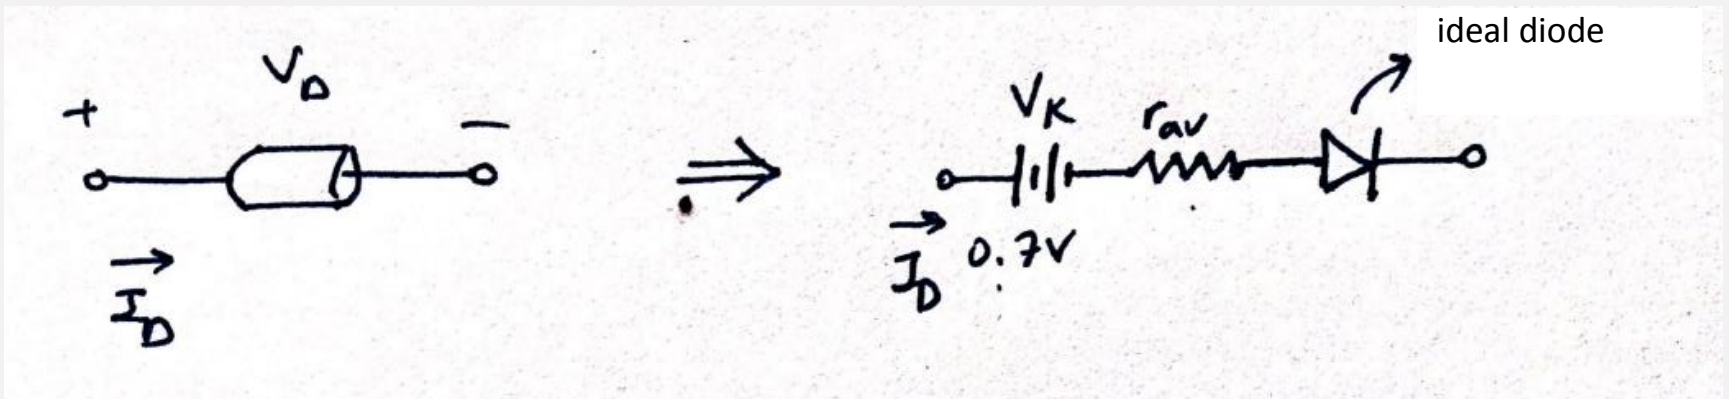 ideal diode
V_D
+
−
V_K
r_av
I_D
I_D
0.7V